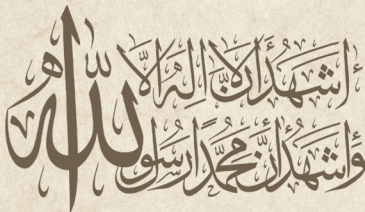 أَشْهَدُ أَنْ لَا إِلٰهَ إِلَّا اللّٰه
وَأَشْهَدُ أَنَّ مُحَمَّدًا رَسُولُ اللّٰه